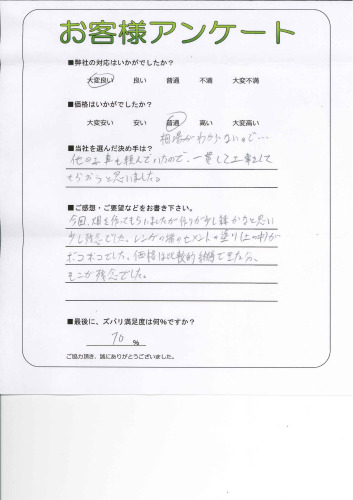 お客様アンケート
■弊社の対応はいかがでしたか?
大変良い 良い 普通 不満 大変不満
■価格はいかがでしたか?
大変安い 安い 普通 高い 大変高い
相場がわからないので…
■当社を選んだ決め手は?
他の工事も頼んでいたので、一貫して工事をして
もらおうと思いました。
■ご感想・ご要望などをお書き下さい。
今回、畑を作ってもらいましたが作りが少し雑かなと思い
少し残念でした。レンガの塀のセメントの塗り(上の部分)が
ボコボコでした。価格は比較的納得できたから、
そこが残念でした。
■最後に、ズバリ満足度は何%ですか?
70 %
ご協力頂き、誠にありがとうございました。